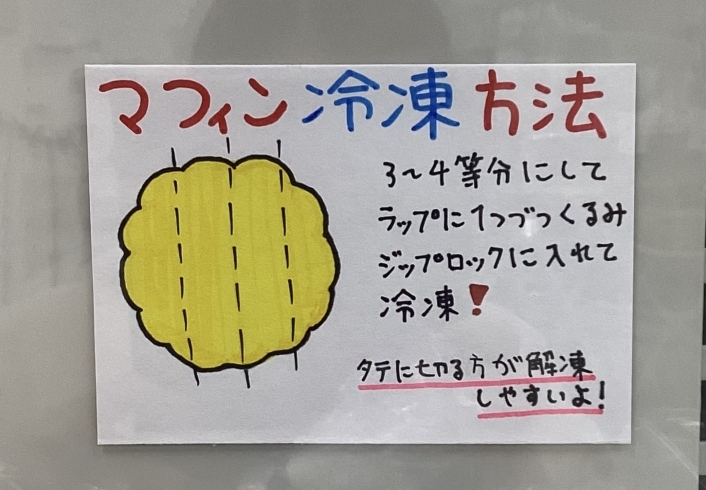 マフィン冷凍方法
3~4等分にして
ラップに1つづつくるみ
ジップロックに入れて
冷凍!
タテに切る方が解凍
しやすいよ!